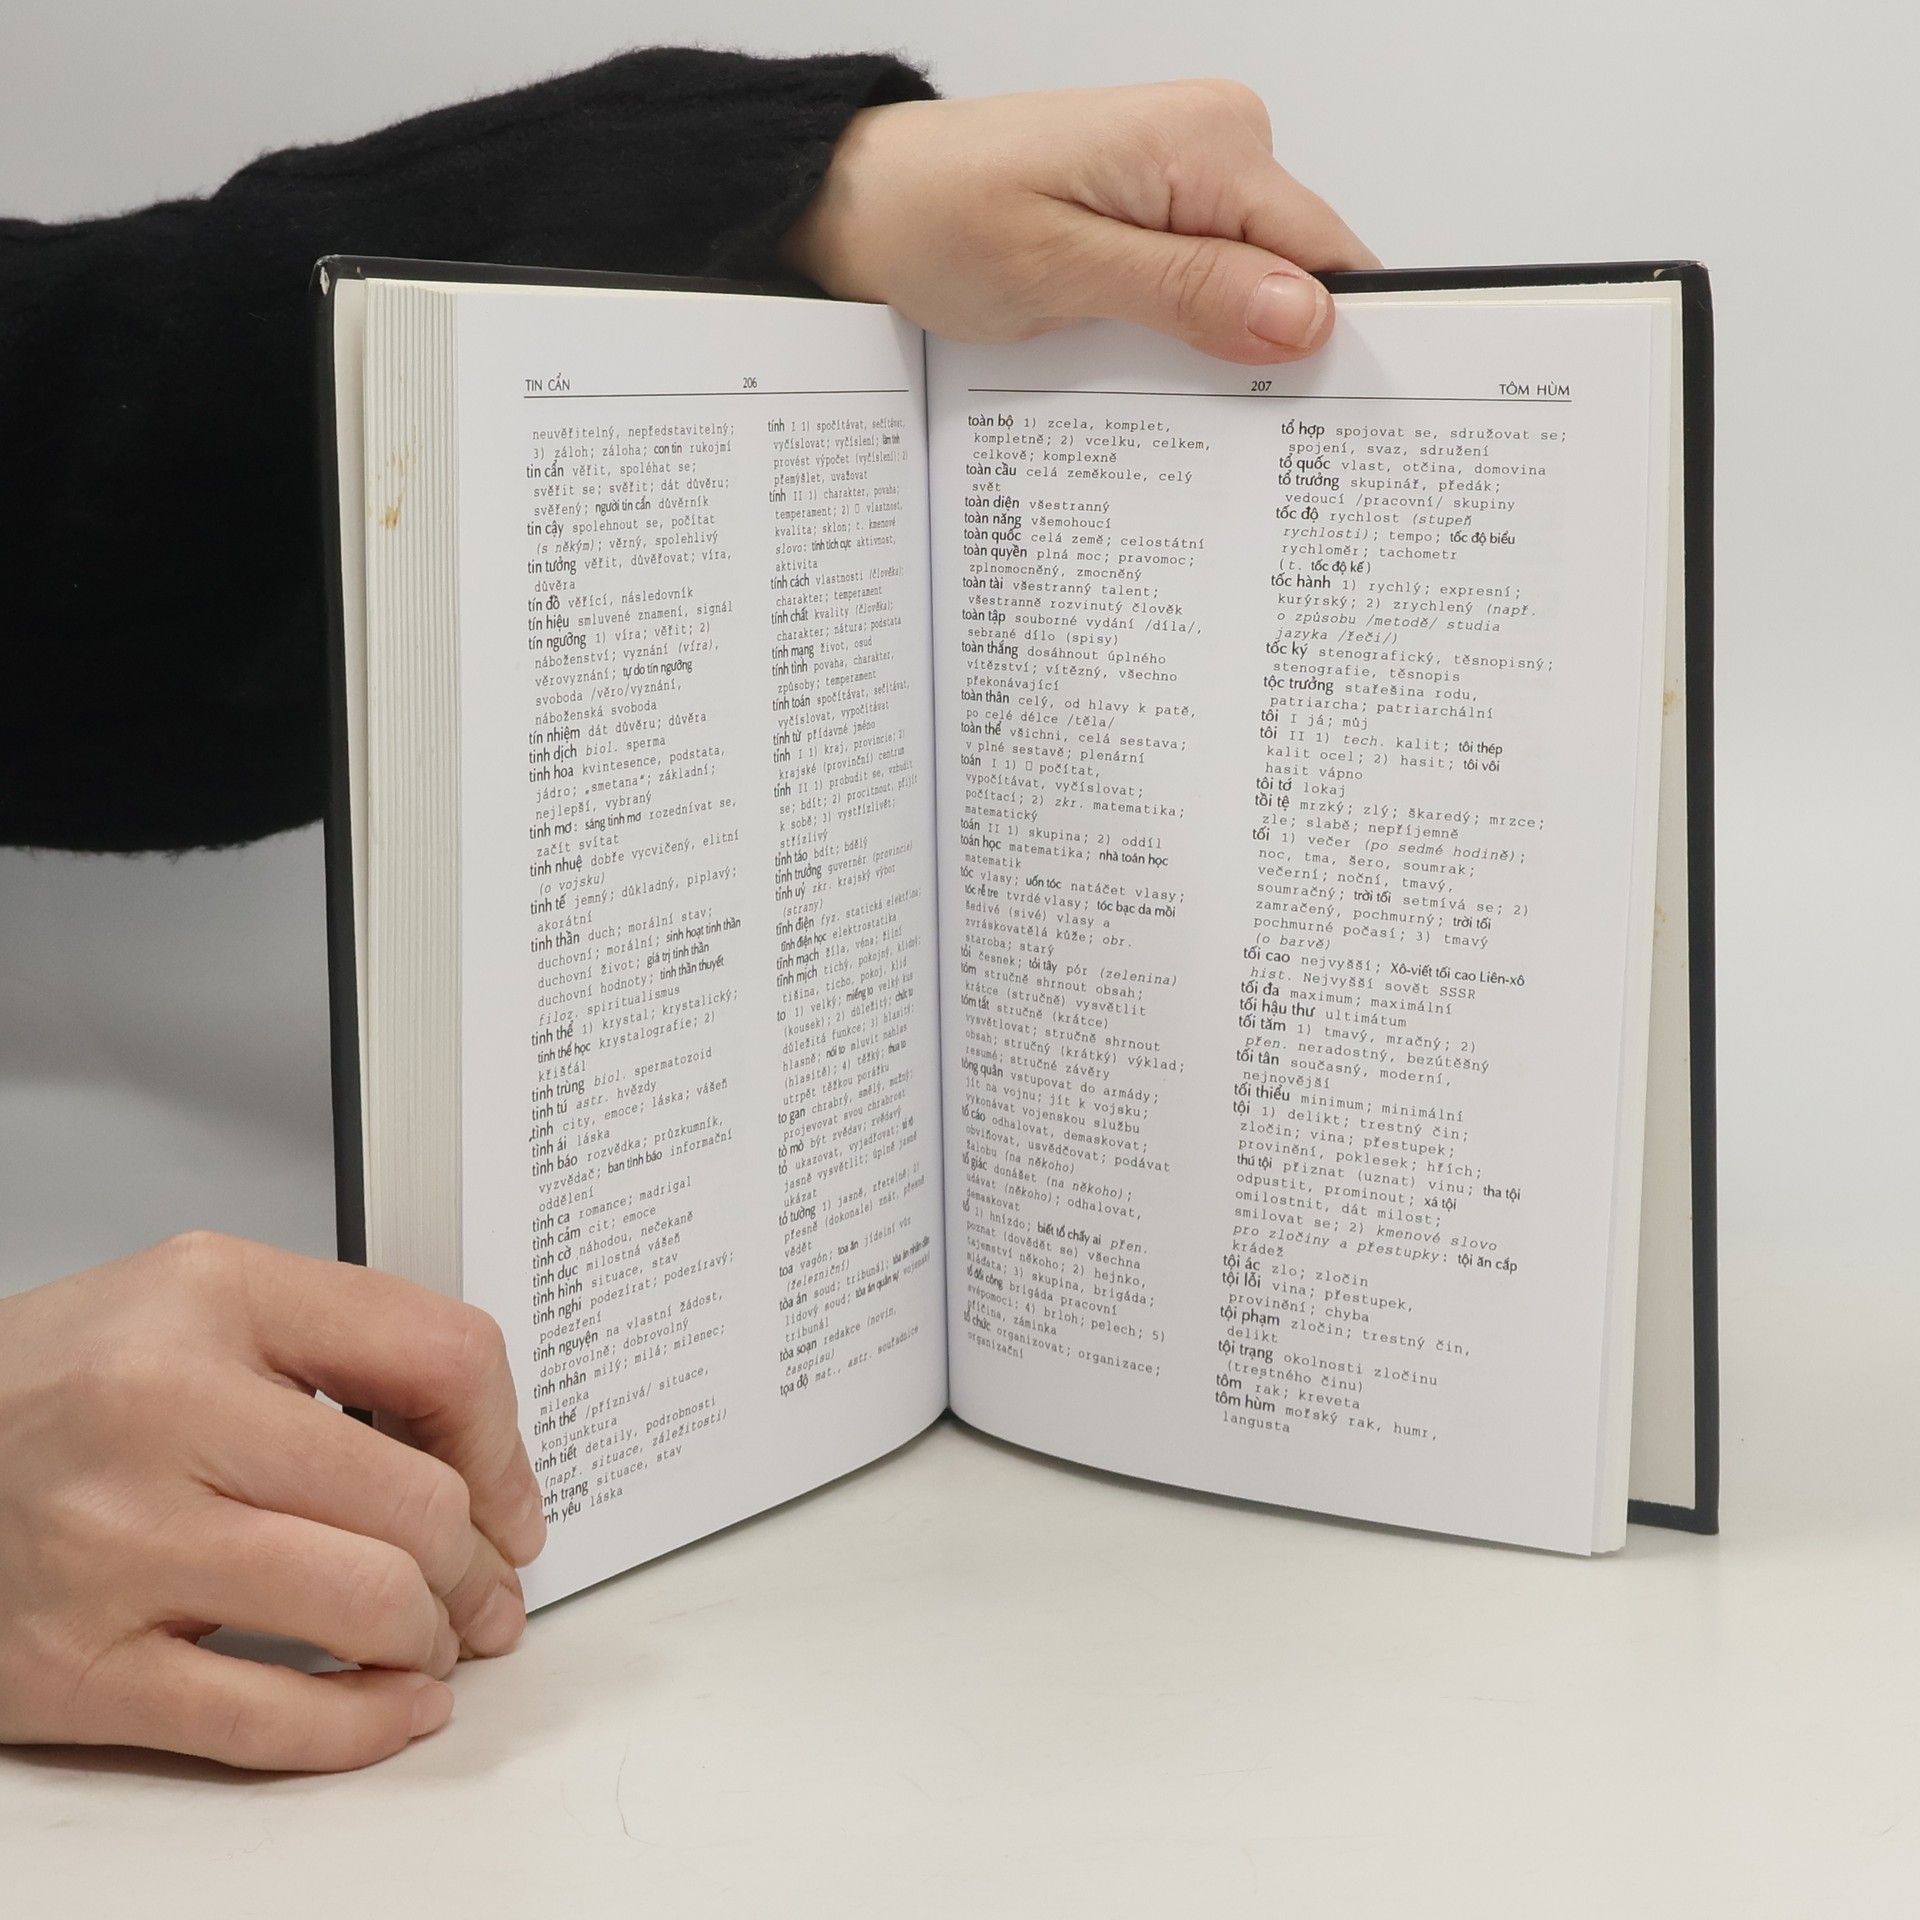 TIN CẨN 206
neuvěřitelný, nepředstavitelný;
3) záloh; záloha; con tin rukojmí
tin cẩn věřit, spoléhat se;
svěřit se; svěřit; dát důvěru;
svěřený; người tin cẩn důvěrník
tin cậy spolehnout se, počítat
(s někým); věrný, spolehlivý
tin tưởng věřit, důvěřovat; víra,
důvěra
tín đồ věřící, následovník
tín hiệu smluvené znamení, signál
tín ngưỡng 1) víra; věřit; 2)
náboženství; vyznání (víra),
věrovyznání; tự do tín ngưỡng
svoboda /věro/vyznání,
náboženská svoboda
tín nhiệm dát důvěru; důvěra
tinh dịch biol. sperma
tinh hoa kvintesence, podstata,
jádro; „smetana“; základní;
nejlepší, vybraný
tinh mơ: sáng tinh mơ rozednívat se,
začít svítat
tinh nhuệ dobře vycvičený, elitní
(o vojsku)
tinh tế jemný; důkladný, piplavý;
akorátní
tinh thần duch; morální stav;
duchovní; morální; sinh hoạt tinh thần
duchovní život; giá trị tinh thần
duchovní hodnoty; tinh thần thuyết
filoz. spiritualismus
tinh thể 1) krystal; krystalický;
tinh thể học krystalografie; 2)
křišťál
tinh trùng biol. spermatozoid
tinh tú astr. hvězdy
tình city, emoce; láska; vášeň
tình ái láska
tình báo rozvědka; průzkumník,
vyzvědač; ban tình báo informační
oddělení
tình ca romance; madrigal
tình cảm cit; emoce
tình cờ náhodou, nečekaně
tình dục milostná vášeň
tình hình situace, stav
tình nghi podezírat; podezíravý;
podezření
tình nguyện na vlastní žádost,
dobrovolně; dobrovolný
tình nhân milý; milá; milenec;
milenka
tình thế /příznivá/ situace,
konjunktura
tình tiết detaily, podrobnosti
(např. situace, záležitosti)
ình trạng situace, stav
nh yêu láska
tính I 1) spočítávat, sečítávat,
vyčíslovat; vyčíslení; làm tính
provést výpočet (vyčíslení); 2)
přemýšlet, uvažovat
tính II 1) charakter, povaha;
temperament; 2) ▯ vlastnost,
kvalita; sklon; t. kmenové
slovo: tính tích cực aktivnost,
aktivita
tính cách vlastnosti (člověka);
charakter; temperament
tính chất kvality (člověka);
charakter; nátura; podstata
tính mạng život, osud
tính tình povaha, charakter,
způsoby; temperament
tính toán spočítávat, sečítávat,
vyčíslovat, vypočítávat
tính từ přídavné jméno
tỉnh I 1) kraj, provincie; 2)
krajské (provinční) centrum
tỉnh II 1) probudit se, vzbudit
se; bdít; 2) procitnout, přijít
k sobě; 3) vystřízlivět;
střízlivý
tỉnh táo bdít; bdělý
tỉnh trưởng guvernér (provincie)
tỉnh uỷ zkr. krajský výbor
(strany)
tĩnh điện fyz. statická elektřina;
tĩnh điện học elektrostatika
tĩnh mạch žíla, véna; žilní
tĩnh mịch tichý, pokojný, klidný;
tišina, ticho, pokoj, klid
to 1) velký; miếng to velký kus
(kousek); 2) důležitý; chức to
důležitá funkce; 3) hlasitý;
hlasně; nói to mluvit nahlas
(hlasitě); 4) těžký; thua to
utrpět těžkou porážku
to gan chrabrý, smělý, mužný;
projevovat svou chrabrost
tò mò být zvědav; zvědavý
tỏ ukazovat, vyjadřovat; tỏ rõ
jasně vysvětlit; úplně jasně
ukázat
tỏ tường 1) jasně, zřetelně; 2)
přesně (dokonale) znát, přesně
vědět
toa vagón; toa ăn jídelní vůz
(železniční)
tòa án soud; tribunál; tòa án nhân dân
lidový soud; tòa án quân sự vojenský
tribunál
tòa soạn redakce (novin,
časopisu)
tọa độ mat., astr. souřadnice
207 TÔM HÙM
toàn bộ 1) zcela, komplet,
kompletně; 2) vcelku, celkem,
celkově; komplexně
toàn cầu celá zeměkoule, celý
svět
toàn diện všestranný
toàn năng všemohoucí
toàn quốc celá země; celostátní
toàn quyền plná moc; pravomoc;
zplnomocněný, zmocněný
toàn tài všestranný talent;
všestranně rozvinutý člověk
toàn tập souborné vydání /díla/,
sebrané dílo (spisy)
toàn thắng dosáhnout úplného
vítězství; vítězný, všechno
překonávající
toàn thân celý, od hlavy k patě,
po celé délce /těla/
toàn thể všichni, celá sestava;
v plné sestavě; plenární
toán I 1) ▯ počítat,
vypočítávat, vyčíslovat;
počítací; 2) zkr. matematika;
matematický
toán II 1) skupina; 2) oddíl
toán học matematika; nhà toán học
matematik
tóc vlasy; uốn tóc natáčet vlasy;
tóc rễ tre tvrdé vlasy; tóc bạc da mồi
šedivé (sivé) vlasy a
zvráskovatělá kůže; obr.
staroba; starý
tỏi česnek; tỏi tây pór (zelenina)
tóm stručně shrnout obsah;
krátce (stručně) vysvětlit
tóm tắt stručně (krátce)
vysvětlovat; stručně shrnout
obsah; stručný (krátký) výklad;
resumé; stručné závěry
tòng quân vstupovat do armády;
jít na vojnu; jít k vojsku;
vykonávat vojenskou službu
tố cáo odhalovat, demaskovat;
obviňovat, usvědčovat; podávat
žalobu (na někoho)
tố giác donášet (na někoho);
udávat (někoho); odhalovat,
demaskovat
tổ 1) hnízdo; biết tổ chấy ai přen.
poznat (dovědět se) všechna
tajemství někoho; 2) hejnko,
mláďata; 3) skupina, brigáda;
tổ đổi công brigáda pracovní
svépomoci; 4) brloh; pelech; 5)
příčina, záminka
tổ chức organizovat; organizace;
organizační
tổ hợp spojovat se, sdružovat se;
spojení, svaz, sdružení
tổ quốc vlast, otčina, domovina
tổ trưởng skupinář, předák;
vedoucí /pracovní/ skupiny
tốc độ rychlost (stupeň
rychlosti); tempo; tốc độ biểu
rychloměr; tachometr
(t. tốc độ kế)
tốc hành 1) rychlý; expresní;
kurýrský; 2) zrychlený (např.
o způsobu /metodě/ studia
jazyka /řeči/)
tốc ký stenografický, těsnopisný;
stenografie, těsnopis
tộc trưởng stařešina rodu,
patriarcha; patriarchální
tôi I já; můj
tôi II 1) tech. kalit; tôi thép
kalit ocel; 2) hasit; tôi vôi
hasit vápno
tôi tớ lokaj
tồi tệ mrzký; zlý; škaredý; mrzce;
zle; slabě; nepříjemně
tối 1) večer (po sedmé hodině);
noc, tma, šero, soumrak;
večerní; noční, tmavý,
soumračný; trời tối setmívá se; 2)
zamračený, pochmurný; trời tối
pochmurné počasí; 3) tmavý
(o barvě)
tối cao nejvyšší; Xô-viết tối cao Liên-xô
hist. Nejvyšší sovět SSSR
tối đa maximum; maximální
tối hậu thư ultimátum
tối tăm 1) tmavý, mračný; 2)
přen. neradostný, bezútěšný
tối tân současný, moderní,
nejnovější
tối thiểu minimum; minimální
tội 1) delikt; trestný čin;
zločin; vina; přestupek;
provinění, poklesek; hřích;
thú tội přiznat (uznat) vinu; tha tội
odpustit, prominout; xá tội
omilostnit, dát milost;
smilovat se; 2) kmenové slovo
pro zločiny a přestupky: tội ăn cắp
krádež
tội ác zlo; zločin
tội lỗi vina; přestupek,
provinění; chyba
tội phạm zločin; trestný čin,
delikt
tội trạng okolnosti zločinu
(trestného činu)
tôm rak; kreveta
tôm hùm mořský rak, humr,
langusta